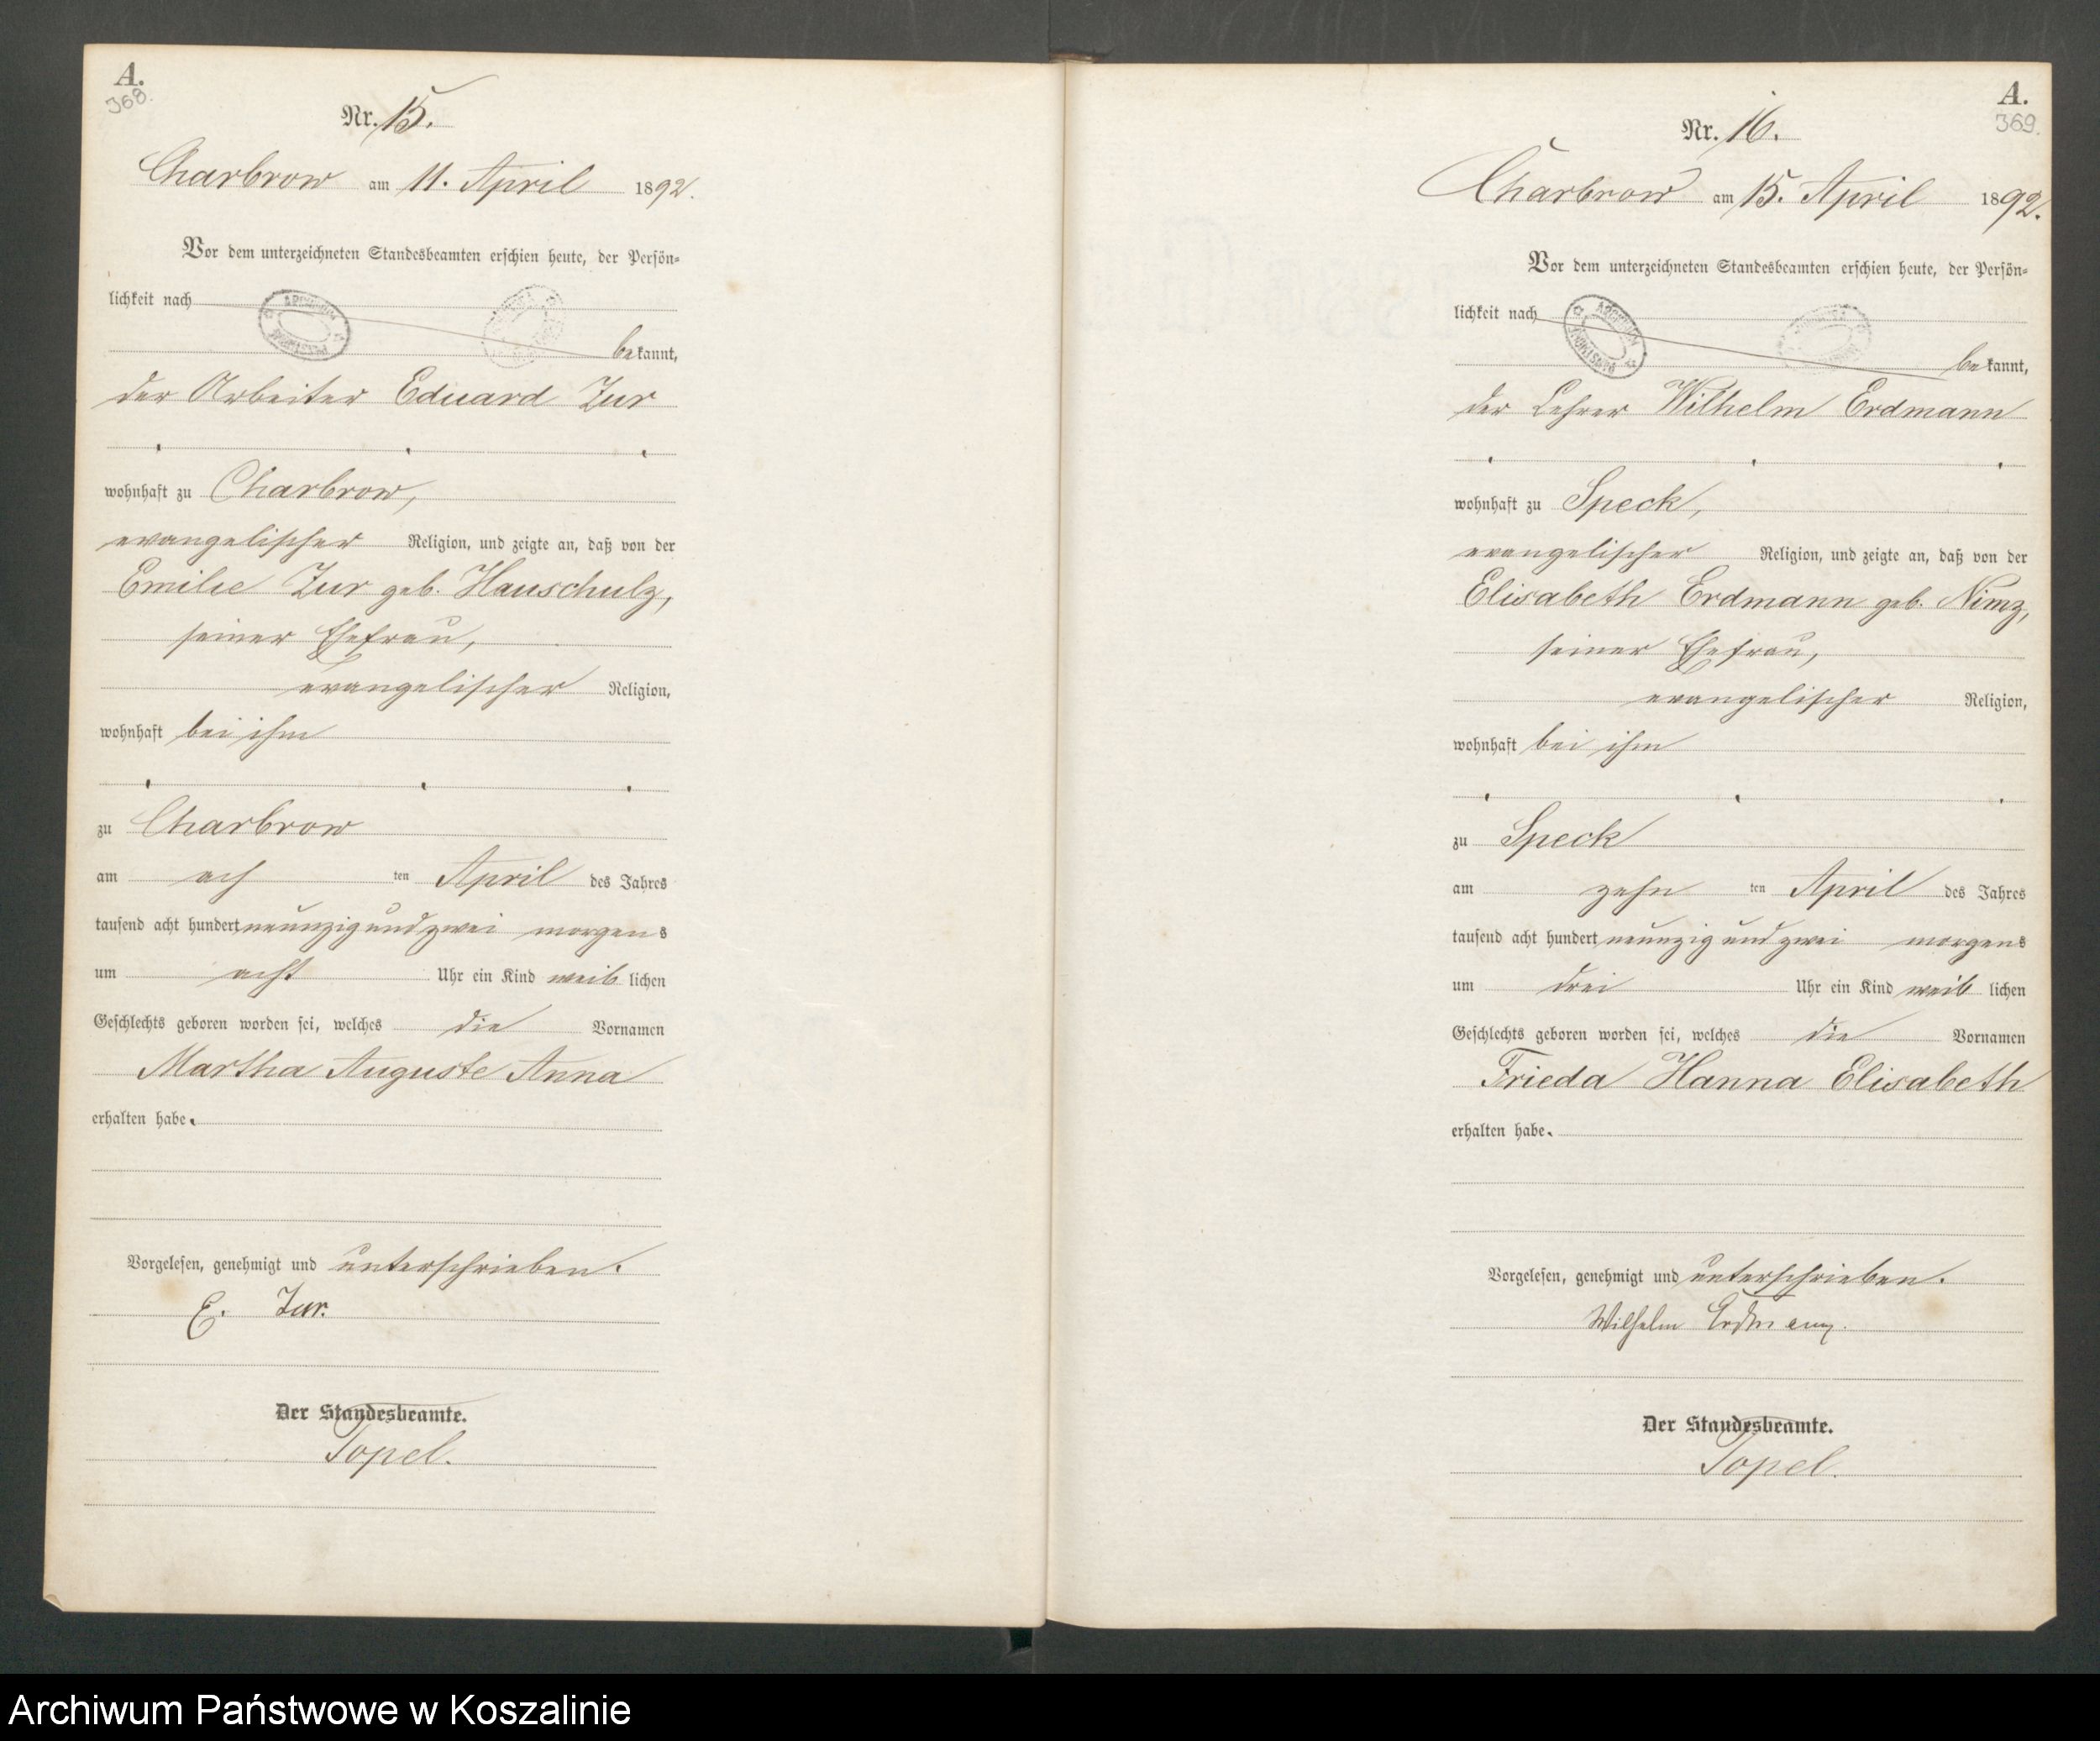 A.
368.
Nr. 15.
Charbrow am 11. April 1892.
Vor dem unterzeichneten Standesbeamten erschien heute, der Persön-
lichkeit nach
bekannt,
der Arbeiter Eduard Zur
wohnhaft zu Charbrow,
evangelischer Religion, und zeigte an, daß von der
Emilie Zur geb. Hauschulz,
seiner Ehefrau,
evangelischer Religion,
wohnhaft bei ihm
zu Charbrow
am ach ten April des Jahres
tausend acht hundert neunzig und zwei morgens
um acht Uhr ein Kind weib lichen
Geschlechts geboren worden sei, welches die Vornamen
Martha Auguste Anna
erhalten habe.
Vorgelesen, genehmigt und unterschrieben.
E. Zur.
Der Standesbeamte.
Topel.
A.
369.
Nr. 16.
Charbrow am 15. April 1892.
Vor dem unterzeichneten Standesbeamten erschien heute, der Persön-
lichkeit nach
bekannt,
der Lehrer Wilhelm Erdmann
wohnhaft zu Speck,
evangelischer Religion, und zeigte an, daß von der
Elisabeth Erdmann geb. Nimz,
seiner Ehefrau,
evangelischer Religion,
wohnhaft bei ihm
zu Speck
am zehn ten April des Jahres
tausend acht hundert neunzig und zwei morgens
um drei Uhr ein Kind weib lichen
Geschlechts geboren worden sei, welches die Vornamen
Frieda Hanna Elisabeth
erhalten habe.
Vorgelesen, genehmigt und unterschrieben.
Wilhelm Erdmann.
Der Standesbeamte.
Topel.
Archiwum Państwowe w Koszalinie